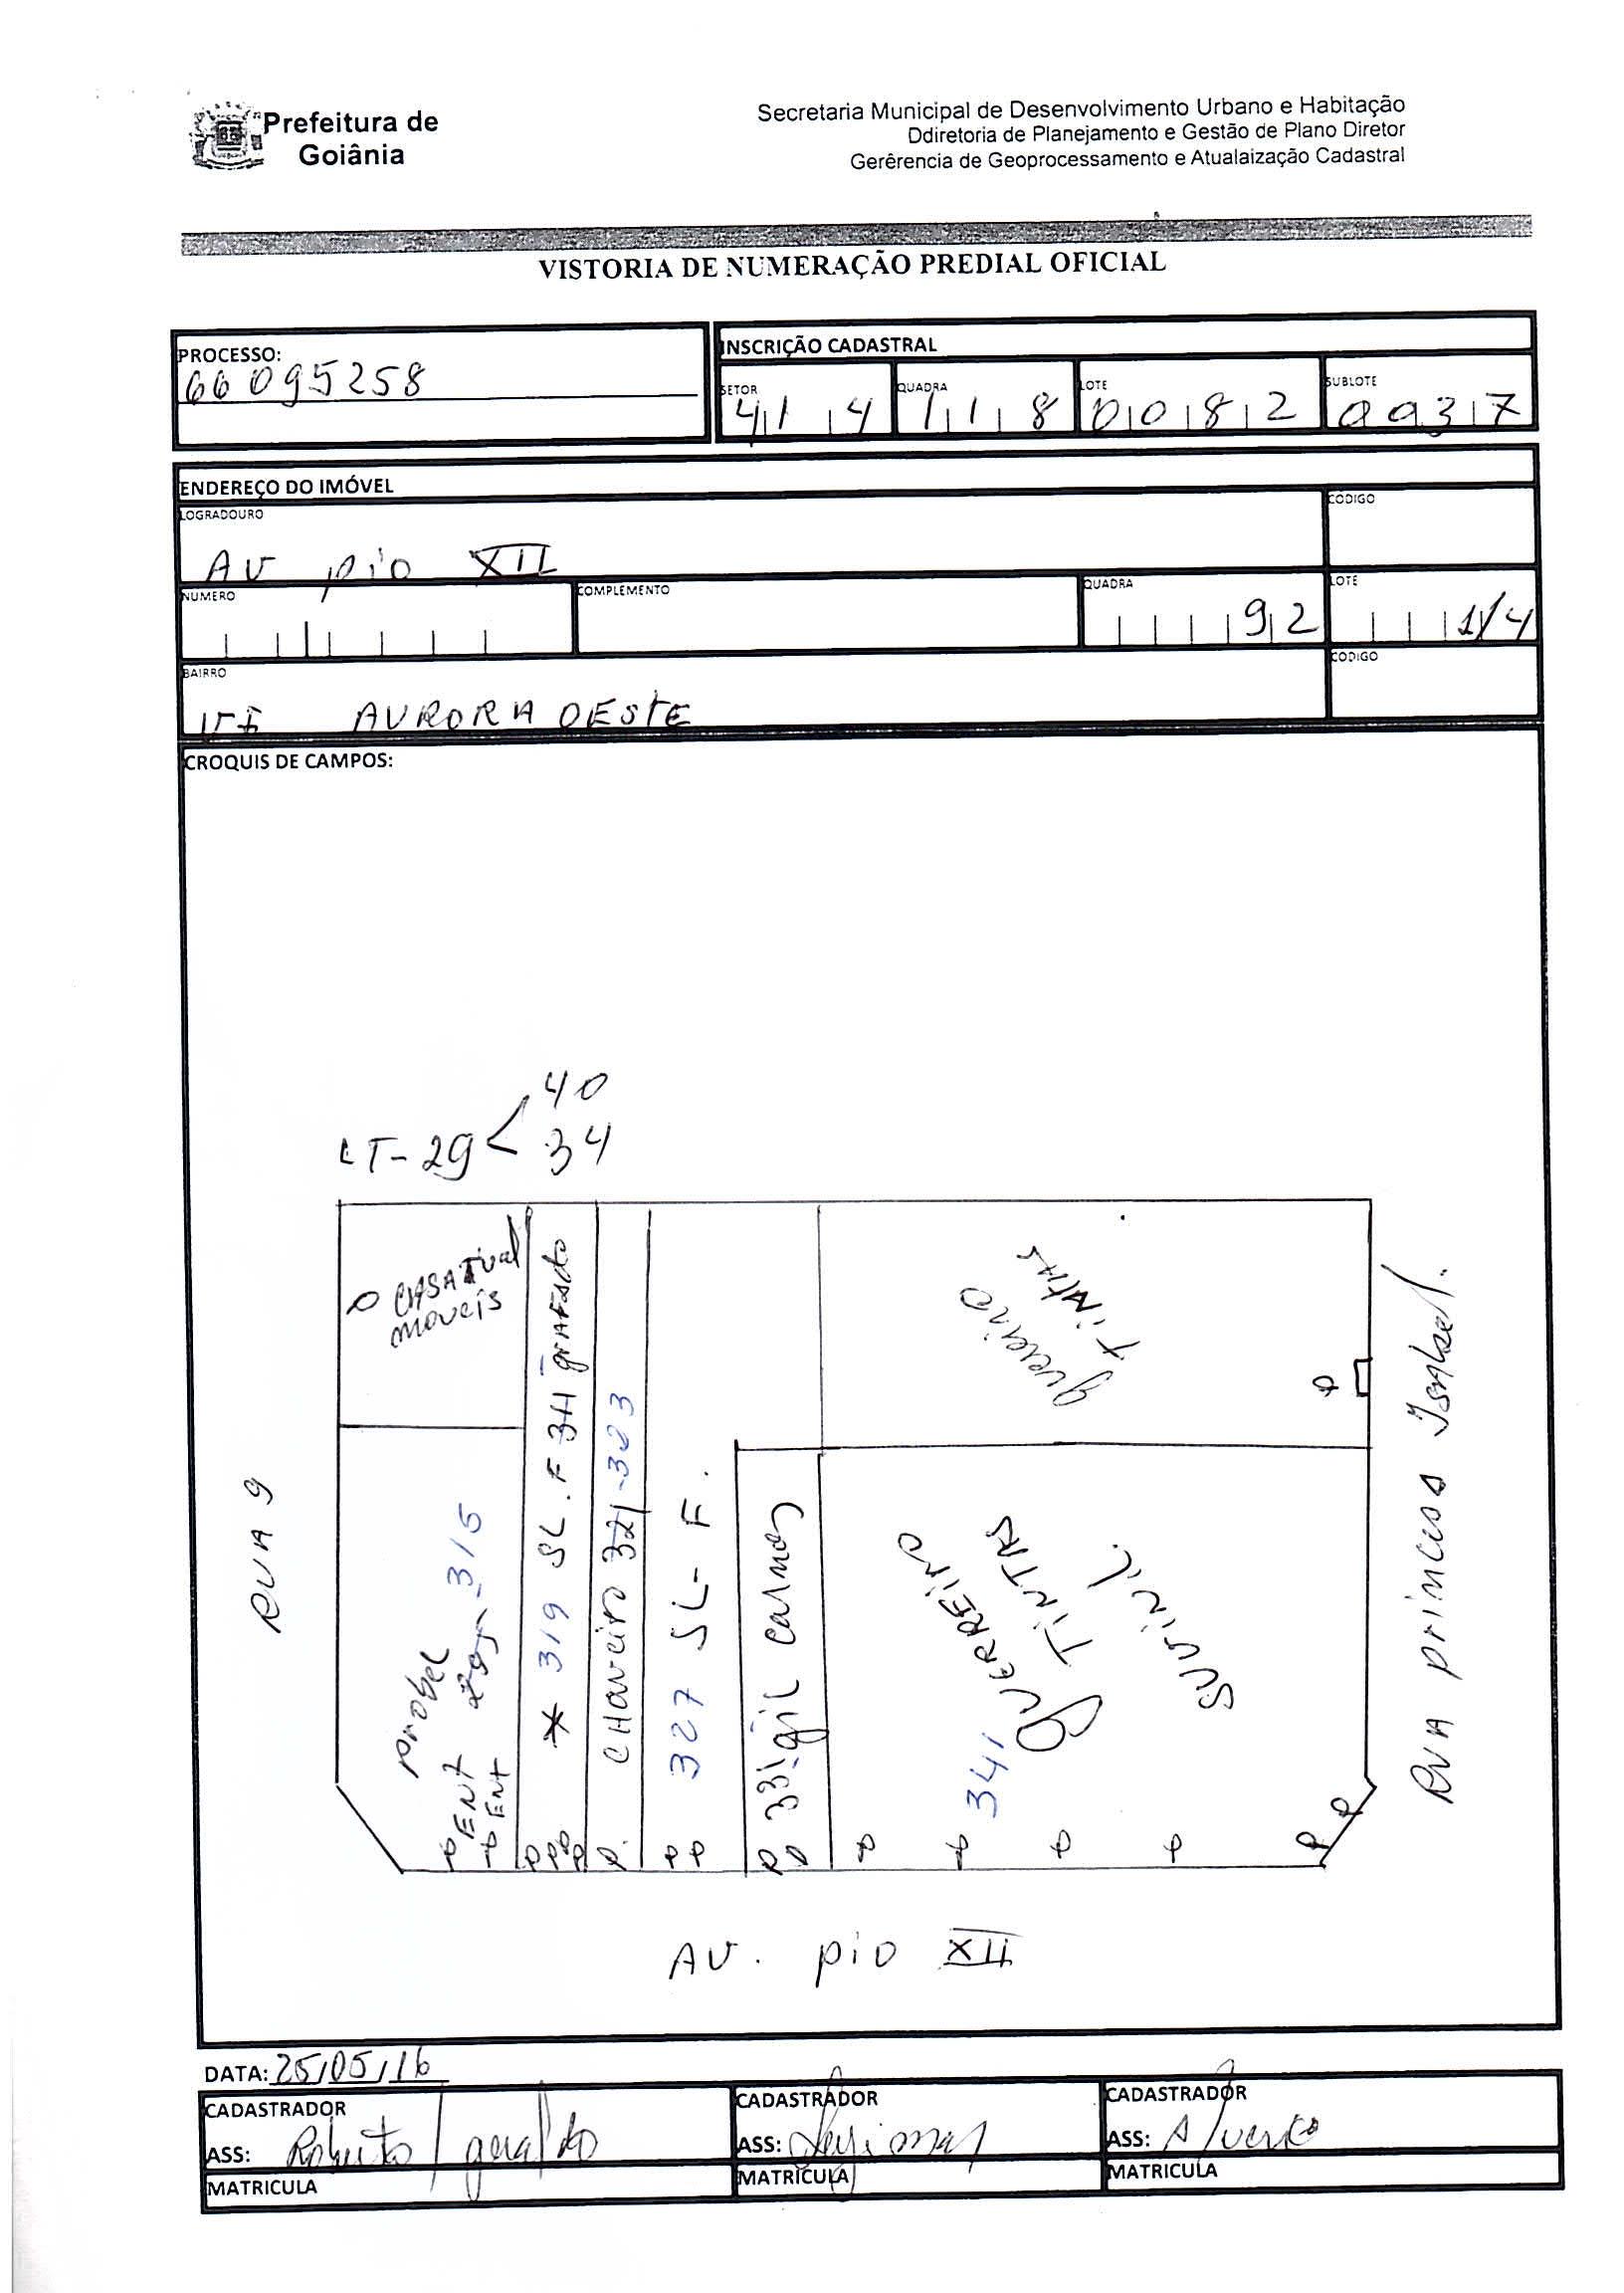 Prefeitura de
Goiânia
Secretaria Municipal de Desenvolvimento Urbano e Habitação
Ddiretoria de Planejamento e Gestão de Plano Diretor
Gerêrencia de Geoprocessamento e Atualaização Cadastral
VISTORIA DE NUMERAÇÃO PREDIAL OFICIAL
PROCESSO:
66095258
INSCRIÇÃO CADASTRAL
SETOR QUADRA LOTE SUBLOTE
41 4 118 0082 0037
ENDEREÇO DO IMÓVEL
LOGRADOURO CODIGO
AV pio XII
NUMERO COMPLEMENTO QUADRA LOTE
92 1/4
BAIRRO CODIGO
AURORA OESTE
CROQUIS DE CAMPOS:
LT-29 < 40
34
CASA Tual
moveis
RUA 9
probel
315
ENT
ENT
* 319 SL. F
CHaveiro 321-323
327 SL- F.
331 gil carnes
guereiro
Tintas
341
GUERREIRO
TINTAS
SUVINIL.
RUA princes Isabel.
AV. pio XII
DATA: 25/05/16
CADASTRADOR
ASS: Roberto / geraldo
MATRICULA
CADASTRADOR
ASS:
MATRICULA
CADASTRADOR
ASS:
MATRICULA